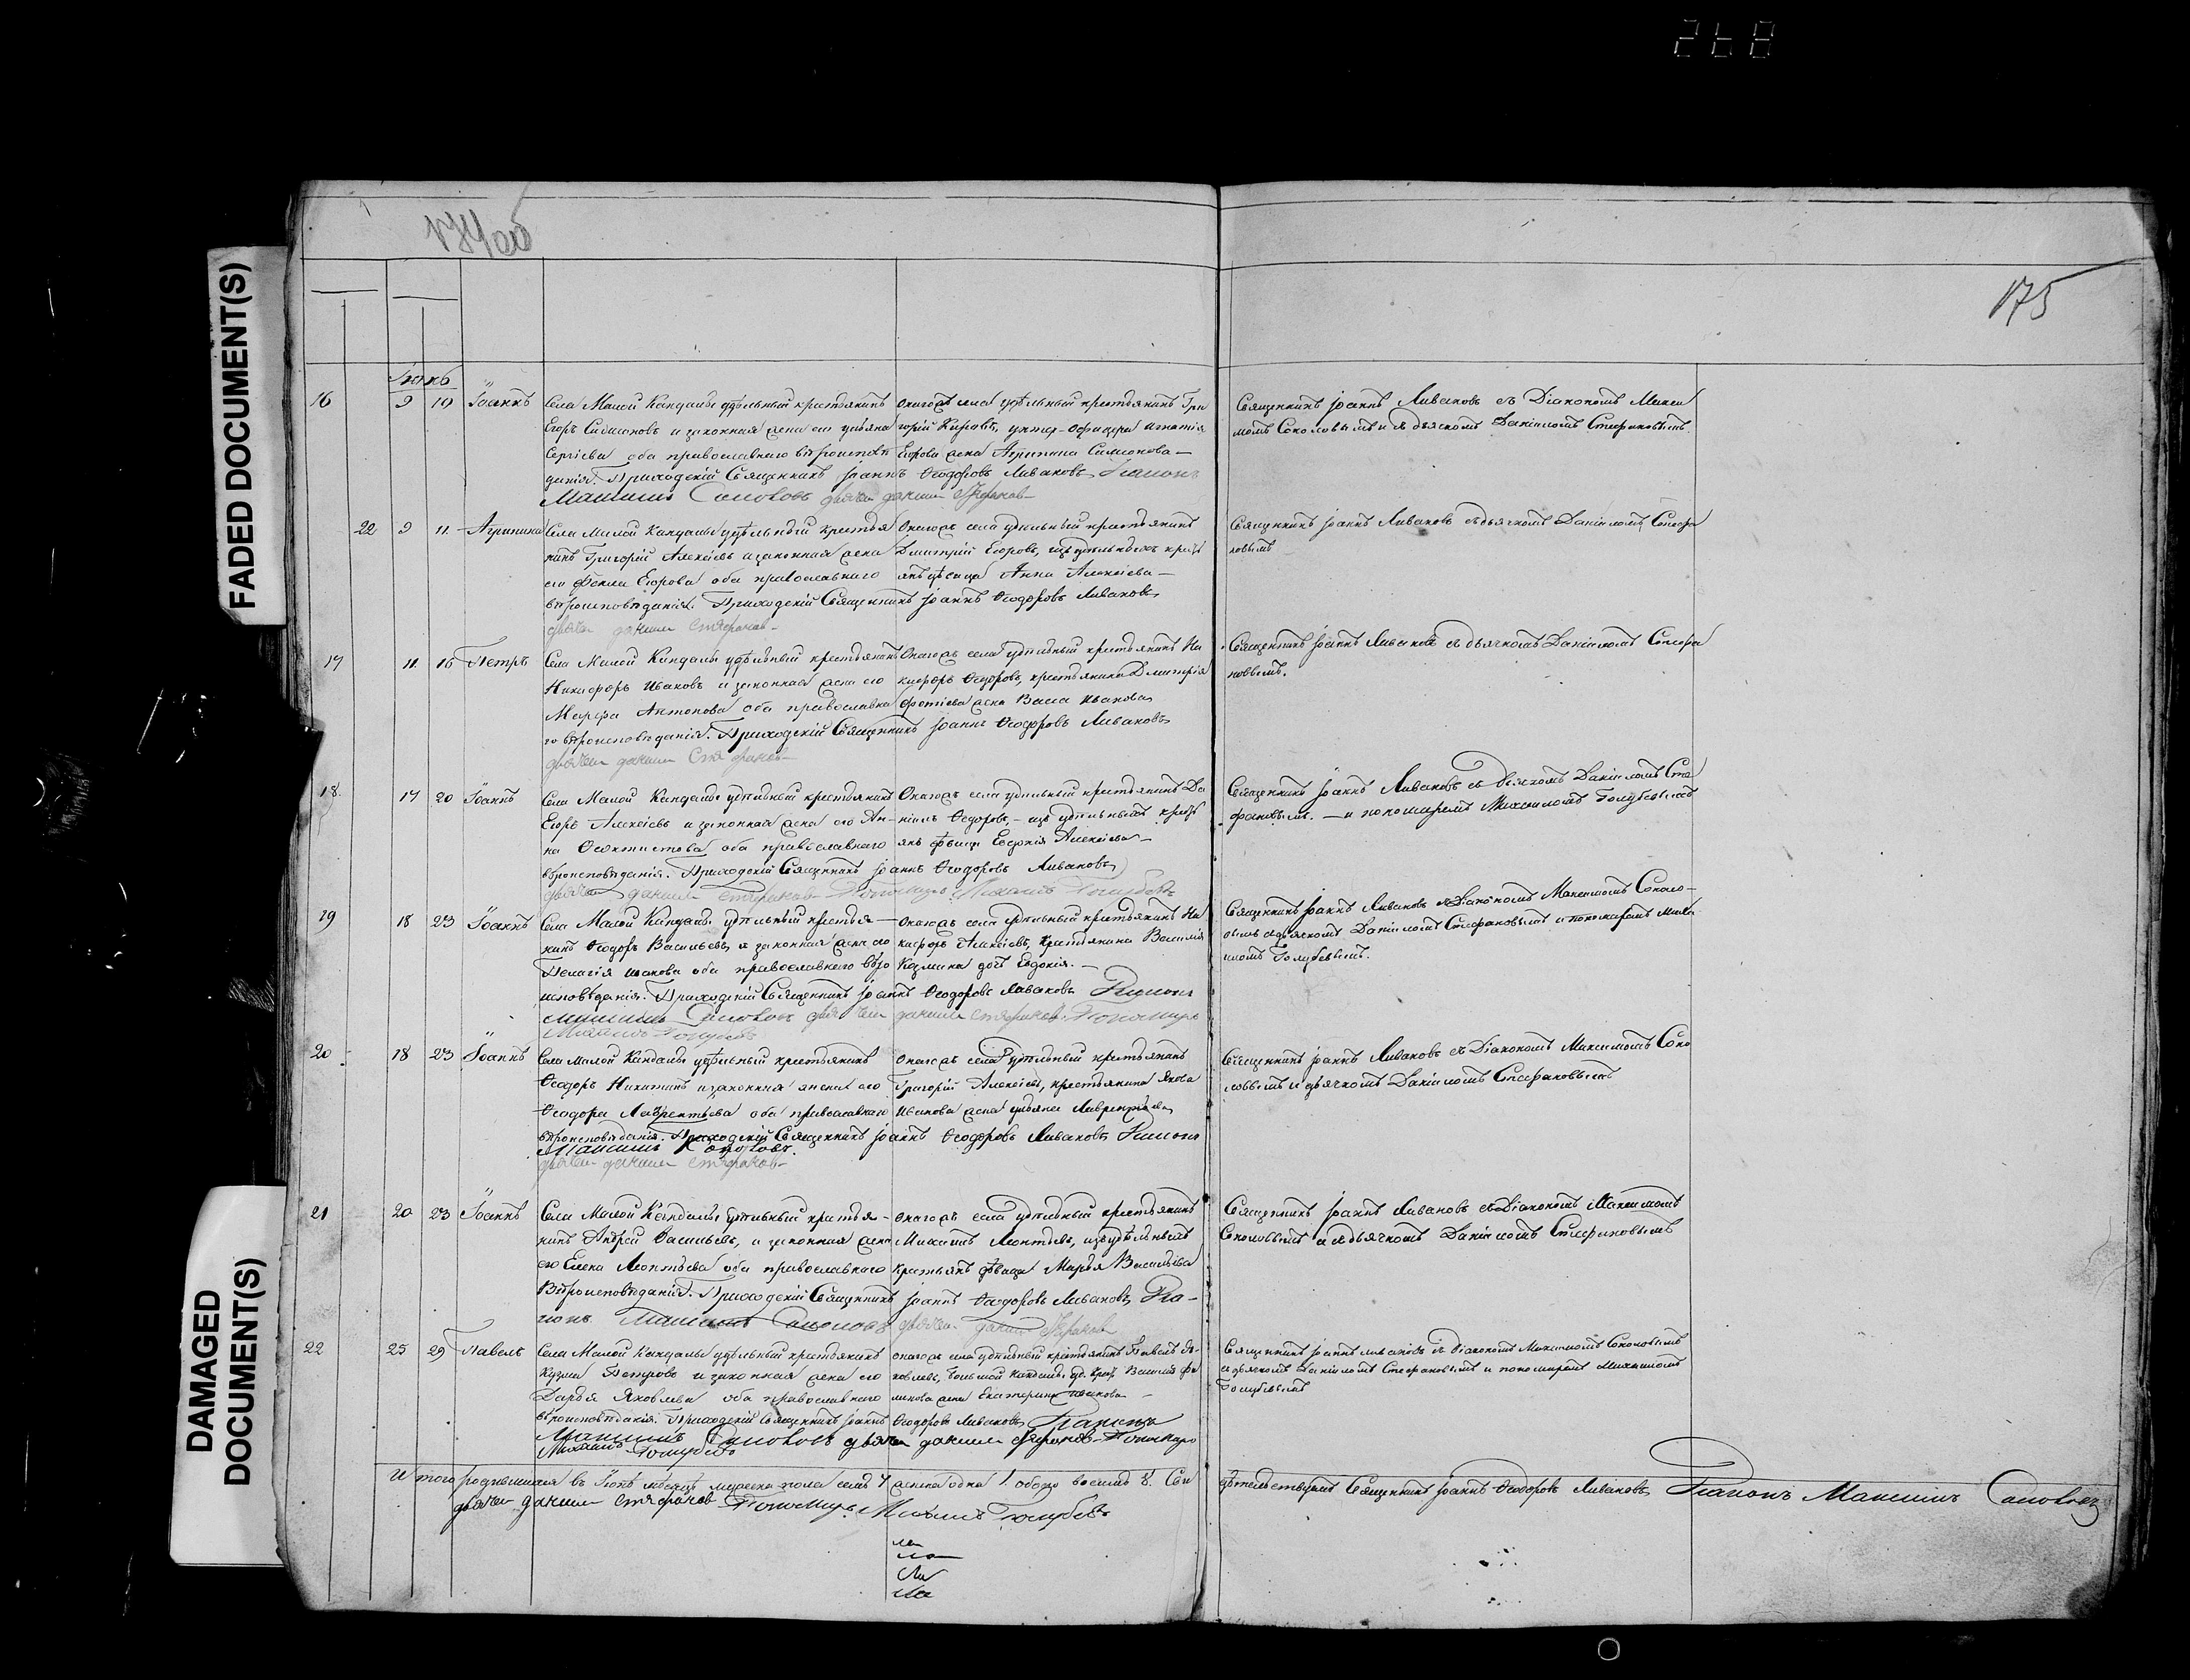 268
FADED DOCUMENT(S)
174об
175
Іюнь
16 9 10 Іоаннъ
Села Малой Кандалы удѣльный крестьянинъ
Егоръ Симоновъ и законная жена его Ульяна
Сергіева оба православнаго вѣроисповѣ
данія. Приходскій Священникъ Іоаннъ Ѳеодоровъ Ливановъ Діаконъ
Максимъ Соколовъ дьячекъ Данила Стефановъ
онагожъ села удѣльный крестьянинъ Гри
горій унтер-офицера Игнатія
Егорова жена Агрипина Симонова
Священникъ Іоаннъ Ливановъ съ Діакономъ Макси
момъ Соколовымъ и съ дьячкомъ Даніиломъ Стефановымъ
22 9 11 Агрипина
Села Малой Кандалы удѣльный крестья
нинъ Григорій Алексѣевъ и законная жена
его Ѳекла Егорова оба православнаго
вѣроисповѣданія. Приходскій Священникъ Іоаннъ Ѳеодоровъ Ливановъ
дьячекъ Данила Стефановъ
Онагожъ села удѣльный крестьянинъ
Дмитрій Егоровъ, изъ удѣльныхъ крест
янъ дѣвица Анна Алексіева
Священникъ Іоаннъ Ливановъ съ дьячкомъ Даніиломъ Стефа
новымъ
17 11 16 Петръ
Села Малой Кандалы удѣльный крестьянинъ
Никифоръ Ивановъ и законная жена его
Марѳа Антонова оба православна
го вѣроисповѣданія. Приходскій Священникъ Іоаннъ Ѳеодоровъ Ливановъ
дьячекъ Данила Стефановъ
Онагожъ села удѣльный крестьянинъ Ни
кифоръ Ѳедоровъ, крестьянина Дмитрія
Фотіева жена Васса Иванова
Священникъ Іоаннъ Ливановъ съ дьячкомъ Даніиломъ Стефа
новымъ.
18 17 20 Іоаннъ
Села Малой Кандалы удѣльный крестьянинъ
Егоръ Алексѣевъ и законная жена его Ан-
на Ѳеоктистова оба православнаго
вѣроисповѣданія. Приходскій Священникъ Іоаннъ Ѳеодоровъ Ливановъ
дьячекъ Данила Стефановъ Пономарь Михаилъ Голубевъ
Онагожъ села удѣльный крестьянинъ Да
ніилъ Ѳедоровъ, - изъ удѣльныхъ крест
янъ дѣвица Евдокія Алексіева
Священникъ Іоаннъ Ливановъ съ дьячкомъ Даніиломъ Сте
фановымъ. — и пономаремъ Михаиломъ Голубевымъ
19 18 23 Іоаннъ
Села Малой Кандалы удѣльный крестья-
нинъ Ѳеодоръ Васильевъ и законная жена его
Пелагія Иванова оба православнаго вѣро
исповѣданія. Приходскій Священникъ Іоаннъ Ѳеодоровъ Ливановъ Діаконъ
Максимъ Соколовъ дьячекъ Данила Стефановъ Пономарь
Михаилъ Голубевъ
онагожъ села удѣльный крестьянинъ Ни
кифоръ Алексѣевъ, крестьянина Василія
Козмина дочь Евдокія.
Священникъ Іоаннъ Ливановъ съ Діакономъ Максимомъ Соколо-
вымъ съ дьячкомъ Даніиломъ Стефановымъ и пономаремъ Миха
иломъ Голубевымъ.
20 18 23 Іоаннъ
Села Малой Кандалы удѣльный крестьянинъ
Ѳеодоръ Никитинъ и законная жена его
Ѳеодора Лаврентьева оба православнаго
вѣроисповѣданія. Приходскій Священникъ Іоаннъ Ѳеодоровъ Ливановъ Діаконъ
Максимъ Соколовъ.
дьячекъ Данила Стефановъ
онагожъ села удѣльный крестьянинъ
Григорій Алексѣевъ, крестьянина Якова
Иванова жена Ульяна Лаврентьева
Священникъ Іоаннъ Ливановъ съ Діакономъ Максимомъ Соко
ловымъ и дьячкомъ Даніиломъ Стефановымъ
21 20 23 Іоаннъ
Села Малой Кандалы удѣльный крестья-
нинъ Андрей Васильевъ, и законная жена
его Елена Леонтьева оба православнаго
Вѣроисповѣданія. Приходскій Священникъ Іоаннъ Ѳеодоровъ Ливановъ Діа-
конъ Максимъ Соколовъ дьячекъ Данила Стефановъ
онагожъ села удѣльный крестьянинъ
Михаилъ Леонтьевъ, изъ удѣльныхъ
крестьянъ дѣвица Марья Васильева
Священникъ Іоаннъ Ливановъ съ Діакономъ Максимомъ
Соколовымъ и съ дьячкомъ Даніиломъ Стефановымъ
22 25 29 Павелъ
Села Малой Кандалы удѣльный крестьянинъ
Кузма Петровъ и законная жена его
Дарья Яковлева оба православнаго
вѣроисповѣданія. Приходскій Священникъ Іоаннъ Ѳеодоровъ Ливановъ Діаконъ
Максимъ Соколовъ дьячекъ Данила Стефановъ Пономарь
Михаилъ Голубевъ
онагожъ села удѣльный крестьянинъ Павелъ Як
ковлевъ, Большой Кандалы уд. крест. Василія Фи
липова жена Екатерина Иванова
Священникъ Іоаннъ Ливановъ съ Діакономъ Максимомъ Соколовымъ
съ дьячкомъ Даніиломъ Стефановымъ и пономаремъ Михаиломъ
Голубевымъ
DAMAGED
DOCUMENT(S)
Итого родившихся въ Іюнѣ мѣсяцѣ мужеска пола семь 7 женска одна 1. обоего восемь 8. Сви
дѣтельствуемъ Священникъ Іоаннъ Ѳеодоровъ Ливановъ Діаконъ Максимъ Соколовъ
дьячекъ Данила Стефановъ Пономарь Михаилъ Голубевъ